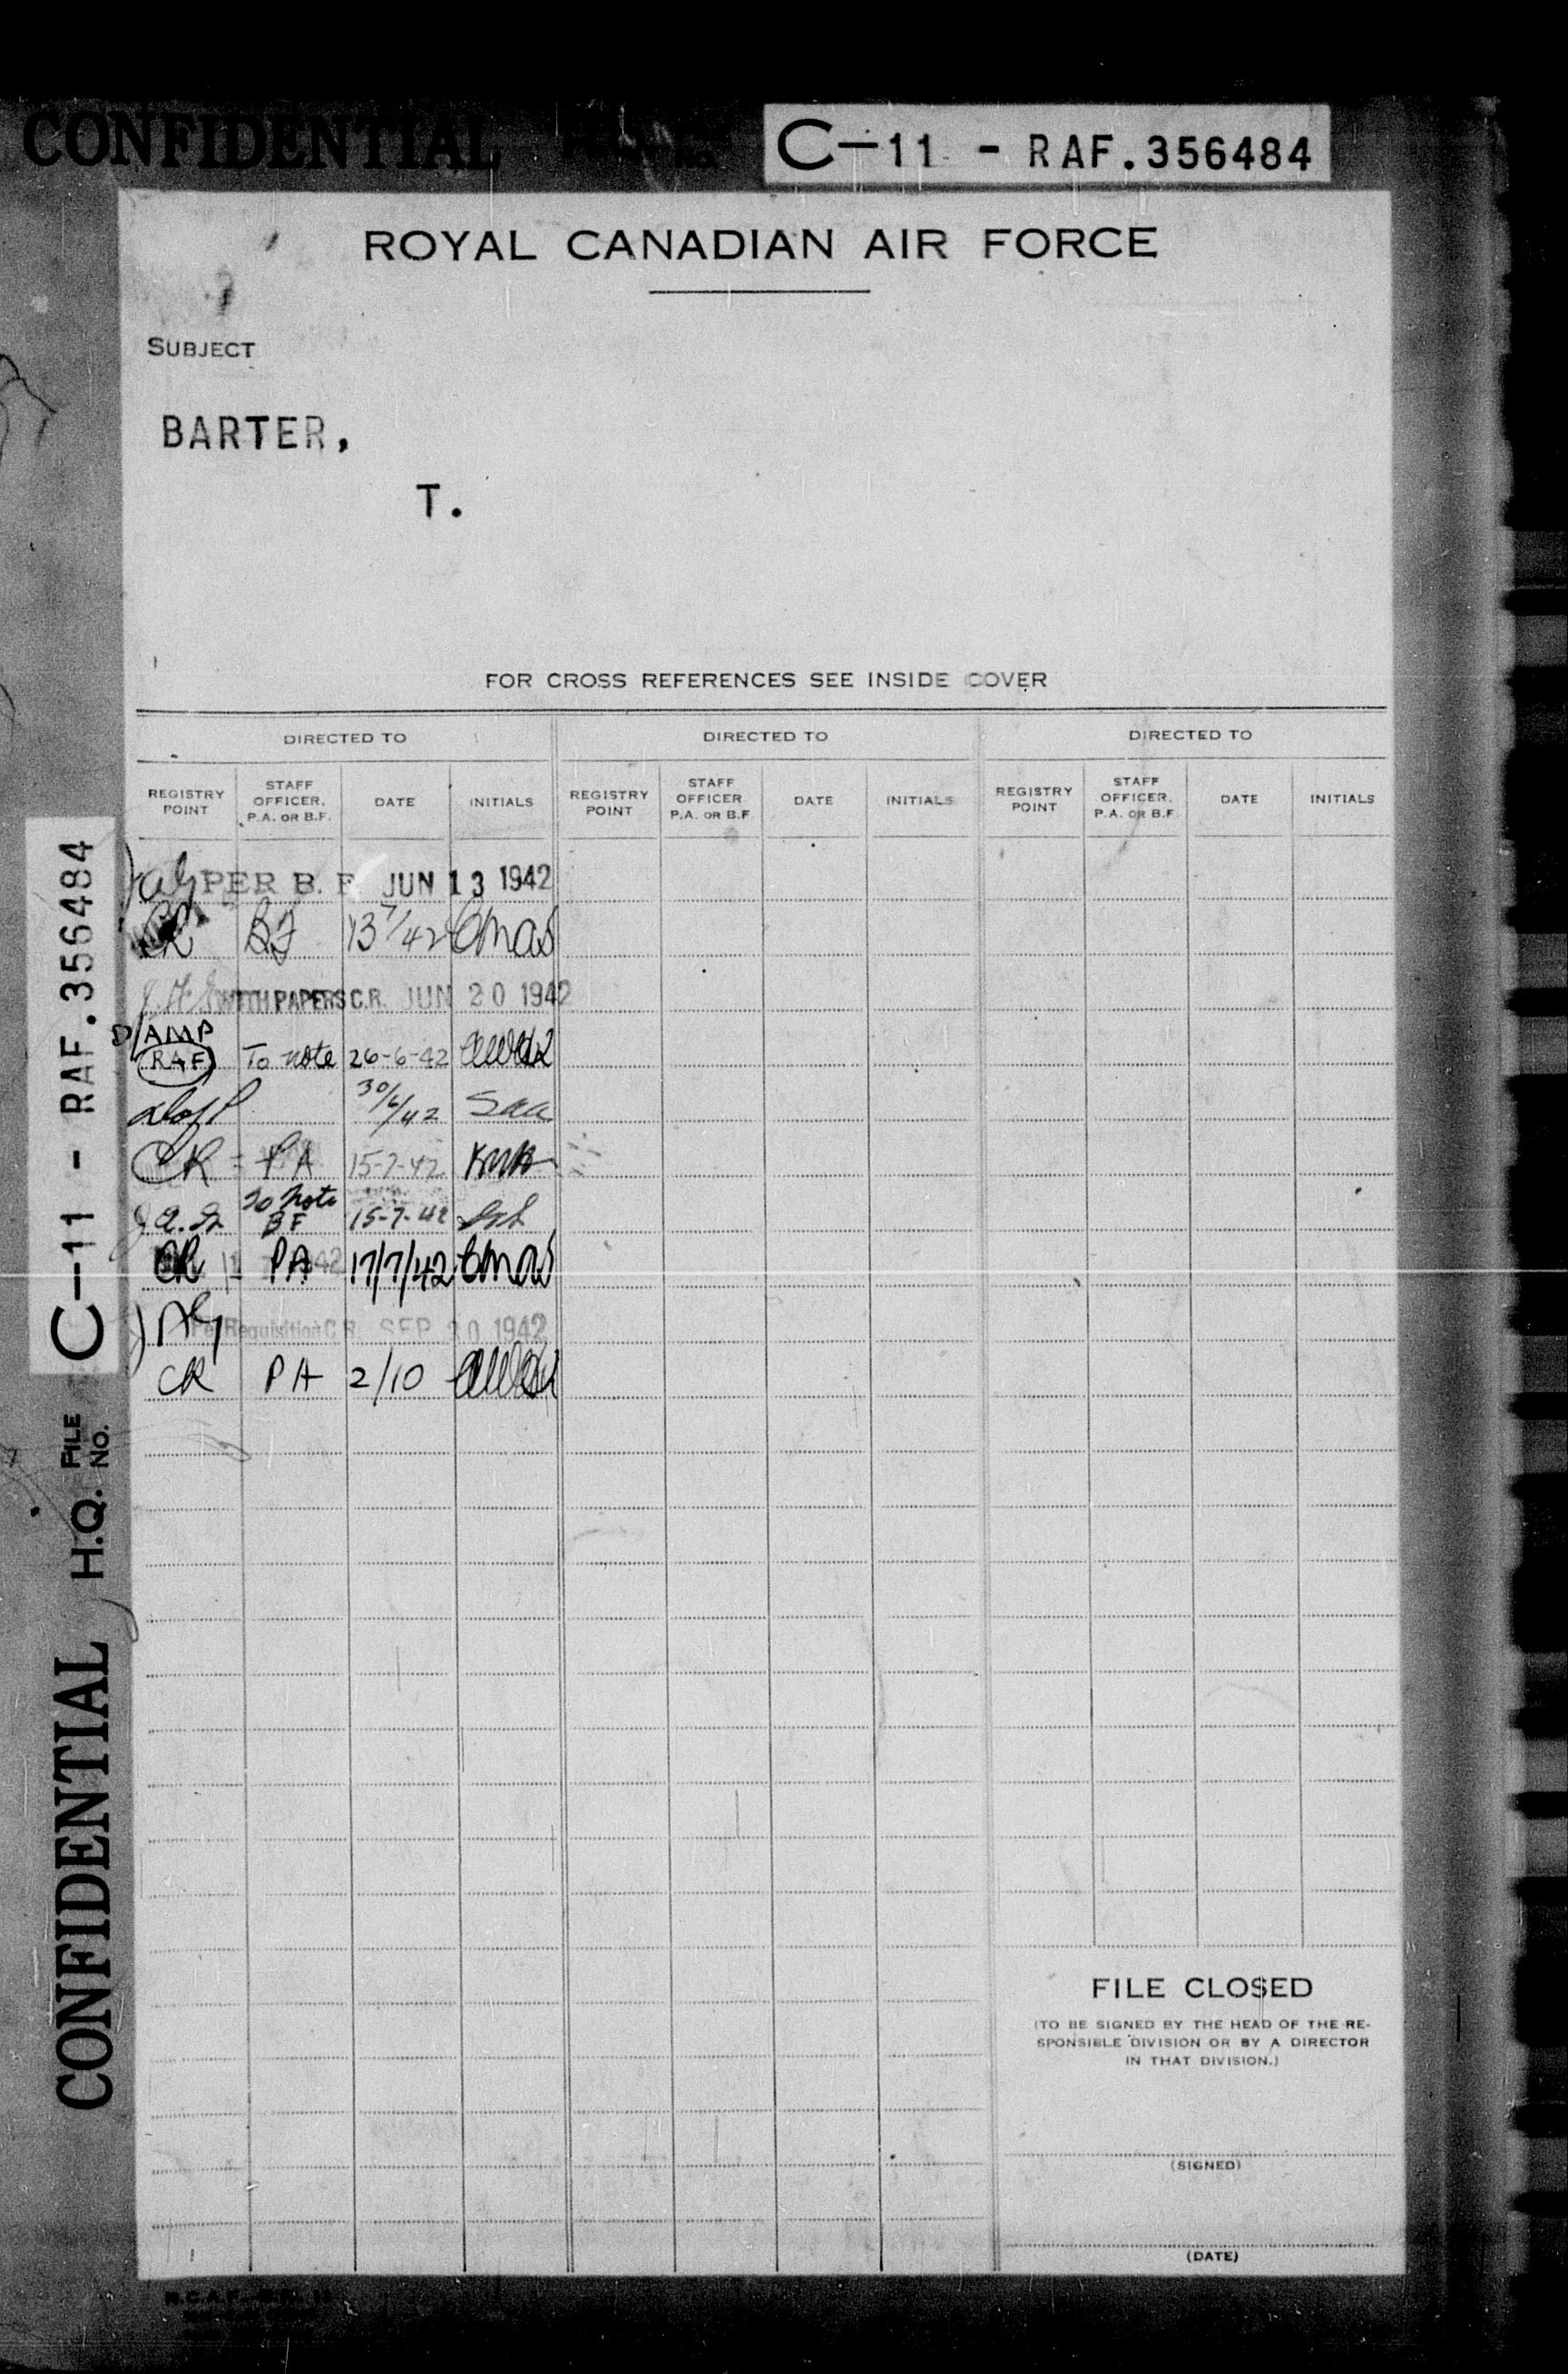 CONFIDENTIAL
C-11 - RAF.356484
ROYAL CANADIAN AIR FORCE
SUBJECT
BARTER,
T.
FOR CROSS REFERENCES SEE INSIDE COVER
DIRECTED TO DIRECTED TO DIRECTED TO
REGISTRY POINT STAFF OFFICER. P.A. OR B.F. DATE INITIALS REGISTRY POINT STAFF OFFICER P.A. OR B.F. DATE INITIALS REGISTRY POINT STAFF OFFICER. P.A. OR B.F. DATE INITIALS
PER B. F. JUN 13 1942
CR BF 13/7/42
WITH PAPERS C.R. JUN 20 1942
D/AMP
RAF To note 26-6-42
30/6/42
CR PA 15-7-42
To note
BF 15-7-42
CR PA 17/7/42
Per Requisition C.R. SEP 30 1942
CR PA 2/10
FILE CLOSED
(TO BE SIGNED BY THE HEAD OF THE RE-
SPONSIBLE DIVISION OR BY A DIRECTOR
IN THAT DIVISION.)
(SIGNED)
(DATE)
CONFIDENTIAL H.Q. FILE NO. C-11 - RAF.356484